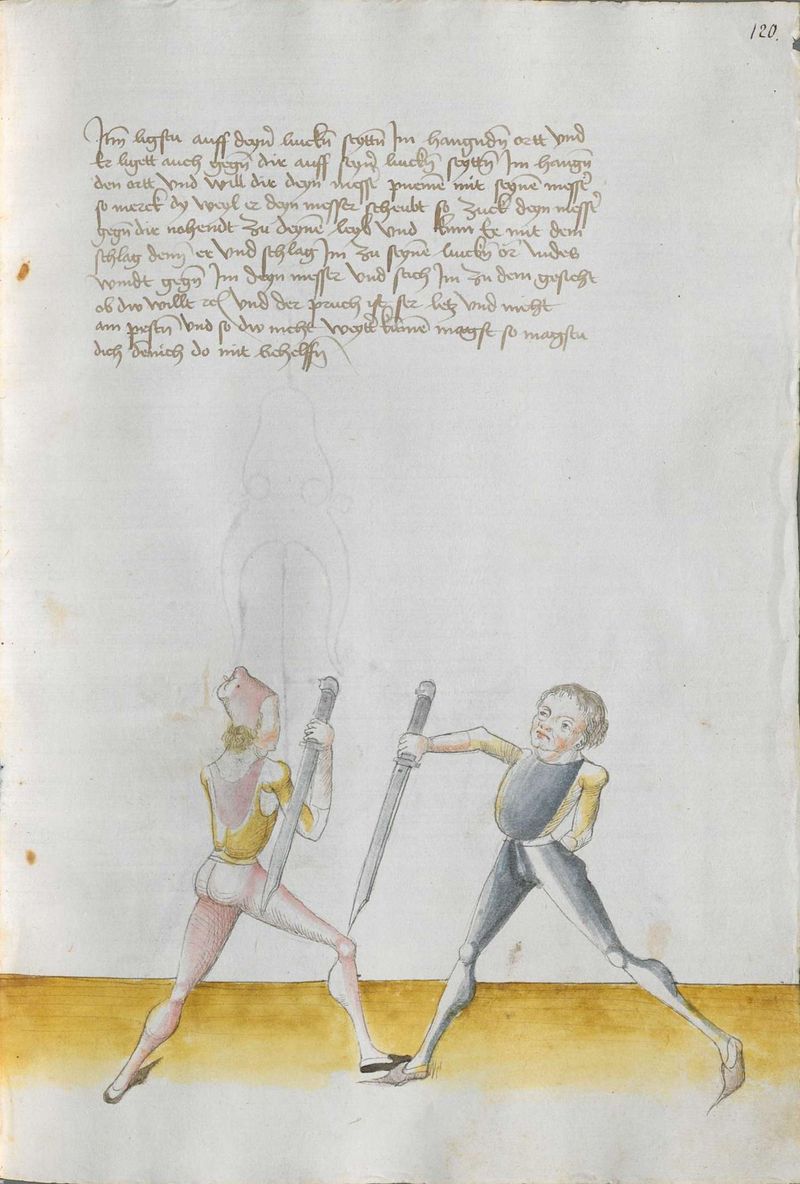 120.
Itm ligstu auff deyner lincken seyttn Im hangndn ortt vnd
Er ligett auch gegn dir auff seyner lincken seyttn Im hangn
den ortt vnd will dir deyn messer nemen mit seynem messer
so merck dy weyl er deyn messer scheubt so zuck deyn messer
gegn dir nohendt zu deynem leyb vnd kum Er mit dem
schlag denn er vnd schlag Im zu seynem lincken or Indes
windt gegn Im deyn messer vnd stich Im zu dem gesicht
ob dw willt vnd der pruch ist ser letz vnd nicht
am pestn vnd so dw nicht weytter kumen magst so magstu
dich dennoch do mit behelffn